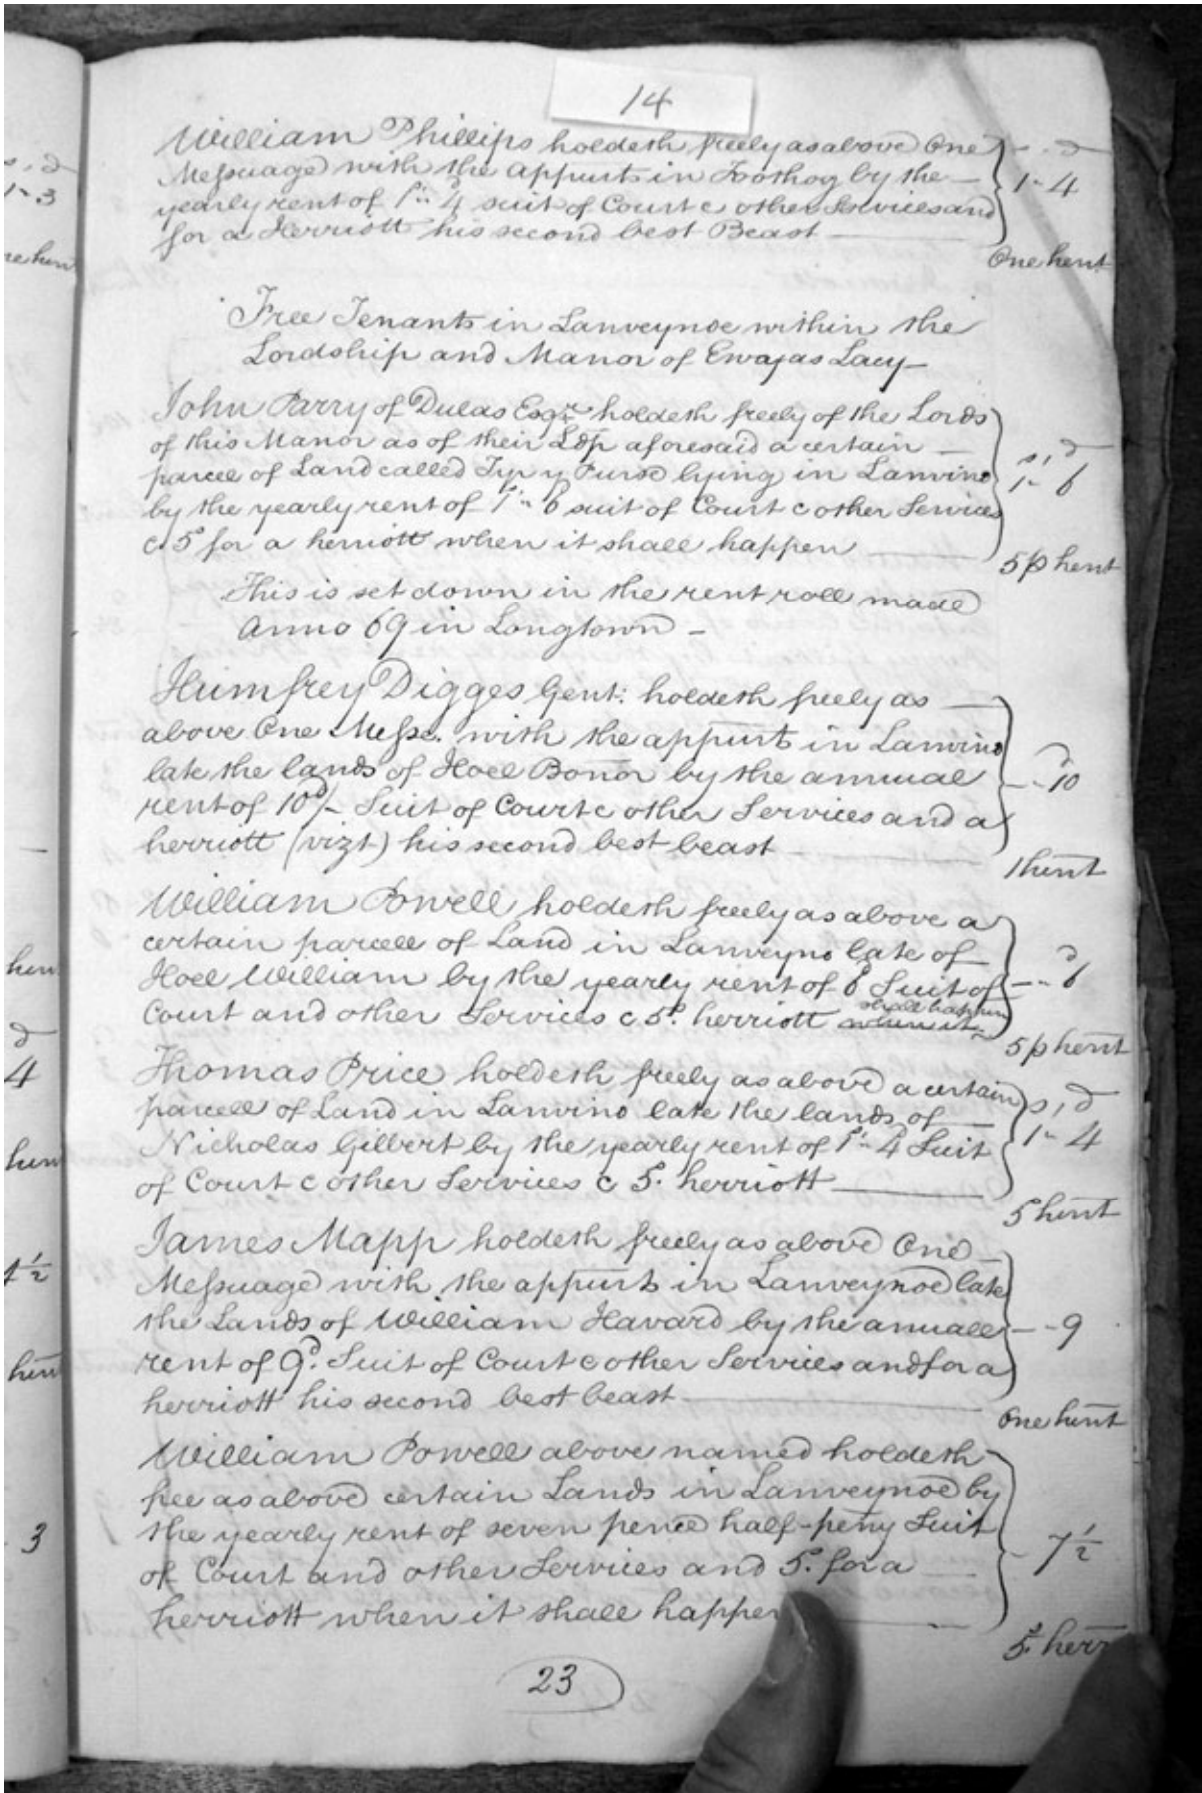 14
William Phillips holdeth freely as above One
Messuage with the appurts in Fothog by the
yearly rent of 1s: 4d suit of Court & other Services and
for a Herriott his second best Beast
s. d
1 - 4
One herit
Free Tenants in Lanveynoe within the
Lordship and Manor of Ewajas Lacy -
John Parry of Dulas Esqr. holdeth freely of the Lords
of this Manor as of their Ldp aforesaid a certain
parcel of Land called Tyr y Purse lying in Lanvino
by the yearly rent of 1s: 6 suit of Court & other Services
& 5s for a herriott when it shall happen
s, d
1 - 6
5s herit
This is set down in the rent roll made
Anno 69 in Longtown -
Humfrey Digges Gent: holdeth freely as
above One Messe. with the appurts in Lanvino
late the lands of Hoel Bonor by the annual
rent of 10d/- Suit of Court & other Services and a
herriott (vizt) his second best beast
d
- - 10
1 herit
William Powell holdeth freely as above a
certain parcell of Land in Lanveyno late of
Hoel William by the yearly rent of 6d Suit of
Court and other Services & 5s. herriott when it shall happen
d
- - 6
5s herit
Thomas Price holdeth freely as above a certain
parcell of Land in Lanvino late the lands of
Nicholas Gilbert by the yearly rent of 1s: 4d Suit
of Court & other Services & 5s. herriott
s, d
1 - 4
5 herit
James Mapp holdeth freely as above One
Messuage with the appurts in Lanveynoe late
the Lands of William Havard by the anuall
rent of 9d. Suit of Court & other Services and for a
herriott his second best beast
- - 9
One herit
William Powell above named holdeth
free as above certain Lands in Lanveynoe by
the yearly rent of seven pence half-peny Suit
of Court and other Services and 5s. for a
herriott when it shall happen
- 7 1/2
5s herr
23